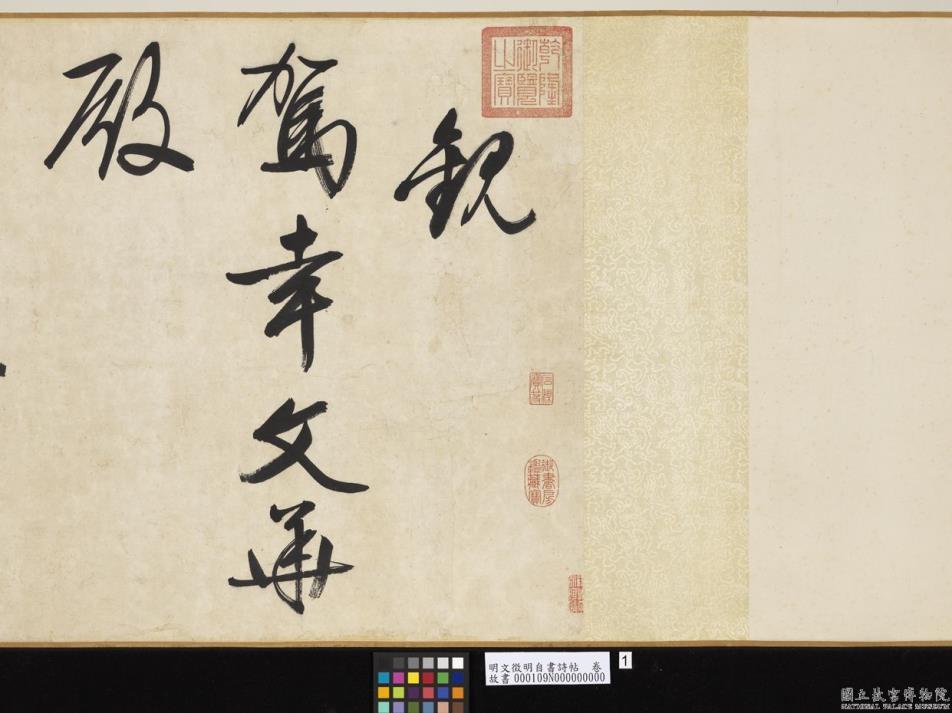 觀
駕幸文華
殿
乾隆御覽之寶
御書房鑑藏寶
明文徵明自書詩帖 卷
故書000109N000000000
1
國立故宮博物院
NATIONAL PALACE MUSEUM